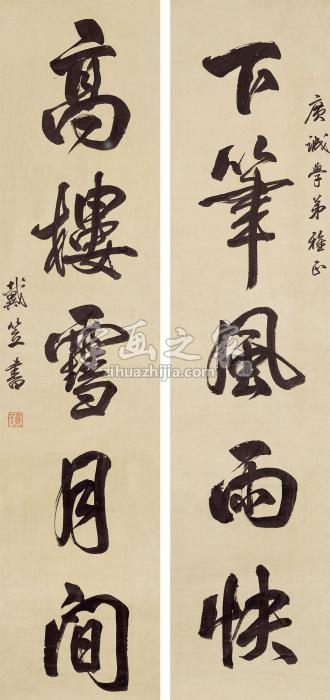 廣誠學弟雅正
下筆風雨快
高樓雪月間
戴笠書
字画之家
zihuazhijia.com